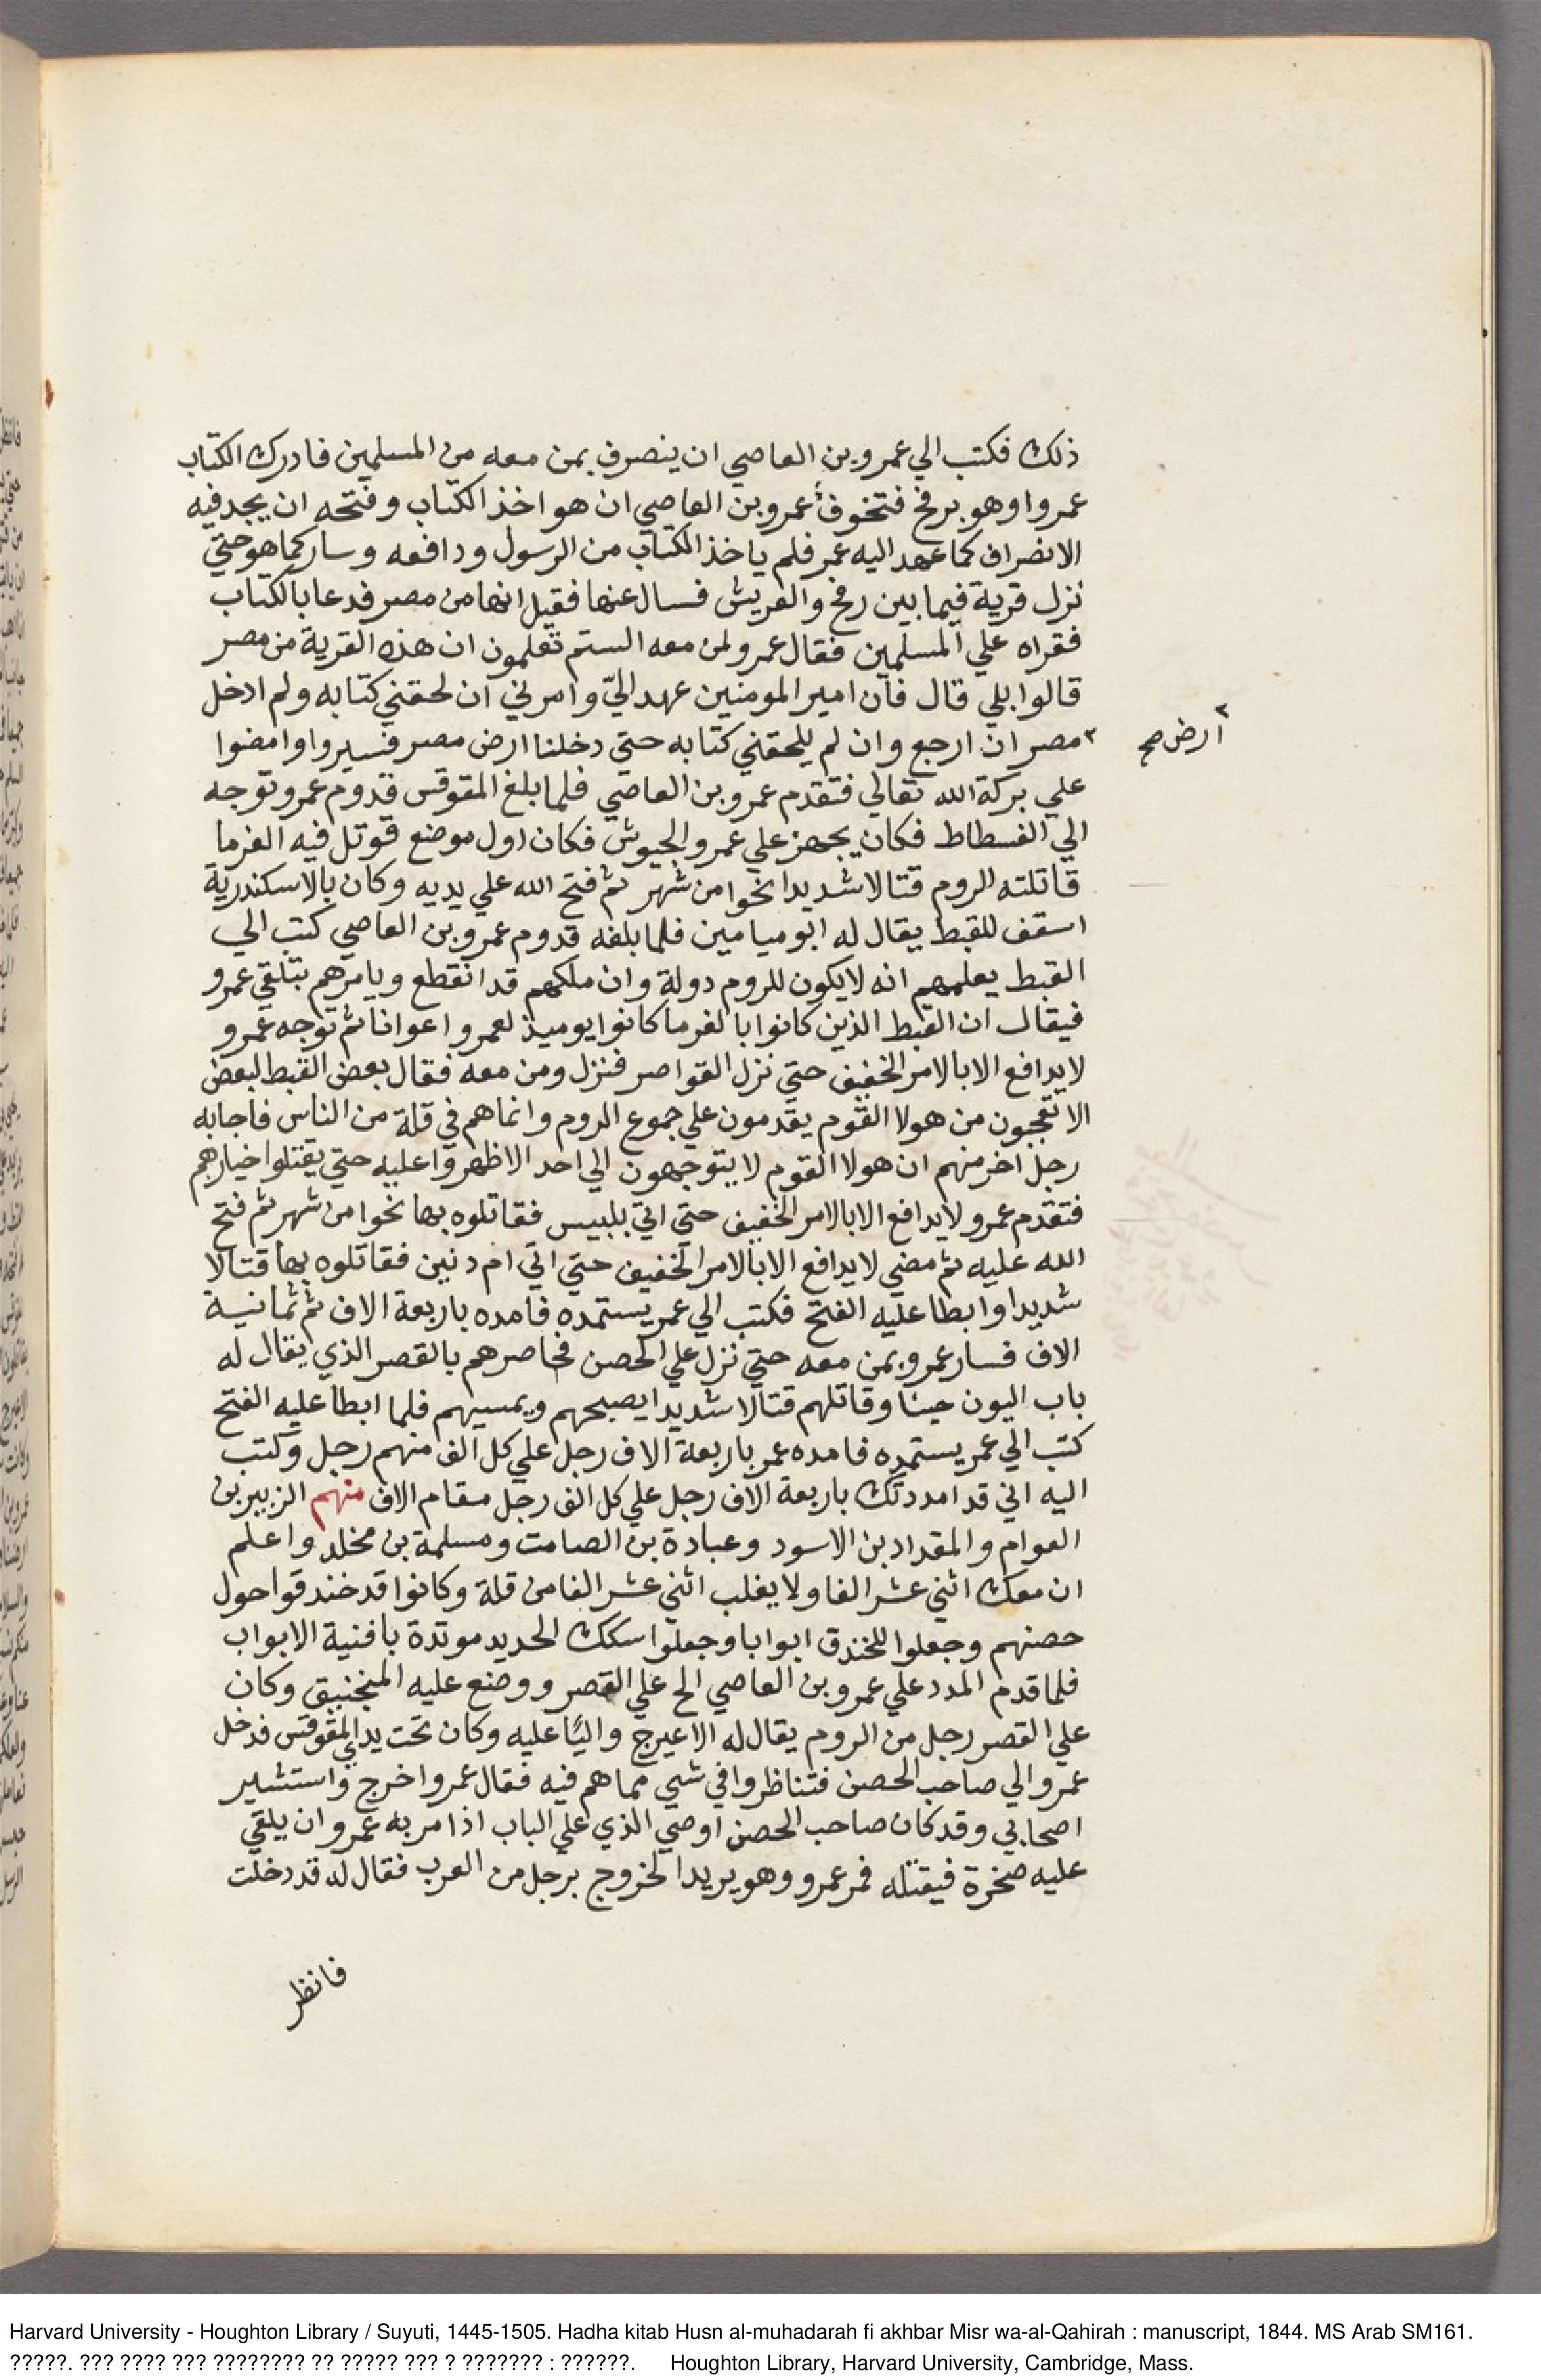 ذلك فكتب الي عمرو بن العاصي ان ينصرف بمن معه من المسلمين فادرك الكتاب
عمروا وهو برفح فتخوف عمرو بن العاصي ان هو اخذ الكتاب وفتحه ان يجد فيه
الانصراف كما عهد اليه عمر فلم ياخذ الكتاب من الرسول ودافعه وسار كما هو حتي
نزل قرية فيما بين رفح والعريش فسال عنها فقيل انها من مصر فدعا بالكتاب
فقراه علي المسلمين فقال عمرو لمن معه الستم تعلمون ان هذه القرية من مصر
قالوا بلي قال فان امير المومنين عهد اليّ وامرني ان لحقني كتابه ولم ادخل
٢ مصر ان ارجع وان لم يلحقني كتابه حتي دخلنا ارض مصر فسيروا وامضوا
٢ ارض صح
علي بركة الله تعالي فتقدم عمرو بن العاصي فلما بلغ المقوقس قدوم عمرو توجه
الي الفسطاط فكان يجهز علي عمرو الجيوش فكان اول موضع قوتل فيه الفرما
قاتلته الروم قتالا شديدا نحوا من شهر ثم فتح الله علي يديه وكان بالاسكندرية
اسقف للقبط يقال له ابو ميامين فلما بلغه قدوم عمرو بن العاصي كتب الي
القبط يعلمهم انه لا يكون للروم دولة وان ملكهم قد انقطع ويامرهم بتلقي عمرو
فيقال ان القبط الذين كانوا بالفرما كانوا يوميذ لعمرو اعوانا ثم توجه عمرو
لا يدافع الا بالامر الخفيف حتي نزل القواصر فنزل ومن معه فقال بعض القبط لبعض
الا تعجبون من هولا القوم يقدمون علي جموع الروم وانما هم في قلة من الناس فاجابه
رجل اخر منهم ان هولا القوم لا يتوجهون الي احد الا ظهروا عليه حتي يقتلوا خيارهم
فتقدم عمرو لا يدافع الا بالامر الخفيف حتي اتي بلبيس فقاتلوه بها نحوا من شهر ثم فتح
الله عليه ثم مضي لا يدافع الا بالامر الخفيف حتي اتي ام دنين فقاتلوه بها قتالا
شديدا وابطا عليه الفتح فكتب الي عمر يستمده فامده باربعة الاف ثم ثمانية
الاف فسار عمرو بمن معه حتي نزل علي الحصن فحاصرهم بالقصر الذي يقال له
باب اليون حينا وقاتلهم قتالا شديدا يصبحهم ويمسيهم فلما ابطا عليه الفتح
كتب الي عمر يستمده فامده عمر باربعة الاف رجل علي كل الف منهم رجل وكتب
اليه اني قد امددتك باربعة الاف رجل علي كل الف رجل مقام الاف منهم الزبير بن
العوام والمقداد بن الاسود وعبادة بن الصامت ومسلمة بن مخلد واعلم
ان معك اثني عشر الفا ولا يغلب اثني عشر الفا من قلة وكانوا قد خندقوا حول
حصنهم وجعلوا للخندق ابوابا وجعلوا سكك الحديد موتدة بافنية الابواب
فلما قدم المدد علي عمرو بن العاصي الح علي القصر ووضع عليه المنجنيق وكان
علي القصر رجل من الروم يقال له الاعيرج واليًا عليه وكان تحت يدي المقوقس فدخل
عمرو الي صاحب الحصن فتناظروا في شي مما هم فيه فقال عمرو اخرج واستشير
اصحابي وقد كان صاحب الحصن اوصي الذي علي الباب اذا مر به عمرو ان يلقي
عليه صخرة فيقتله فمر عمرو وهو يريد الخروج برجل من العرب فقال له قد دخلت
فانظر
Harvard University - Houghton Library / Suyuti, 1445-1505. Hadha kitab Husn al-muhadarah fi akhbar Misr wa-al-Qahirah : manuscript, 1844. MS Arab SM161.
?????. ??? ???? ??? ???????? ?? ????? ??? ? ??????? : ??????. Houghton Library, Harvard University, Cambridge, Mass.